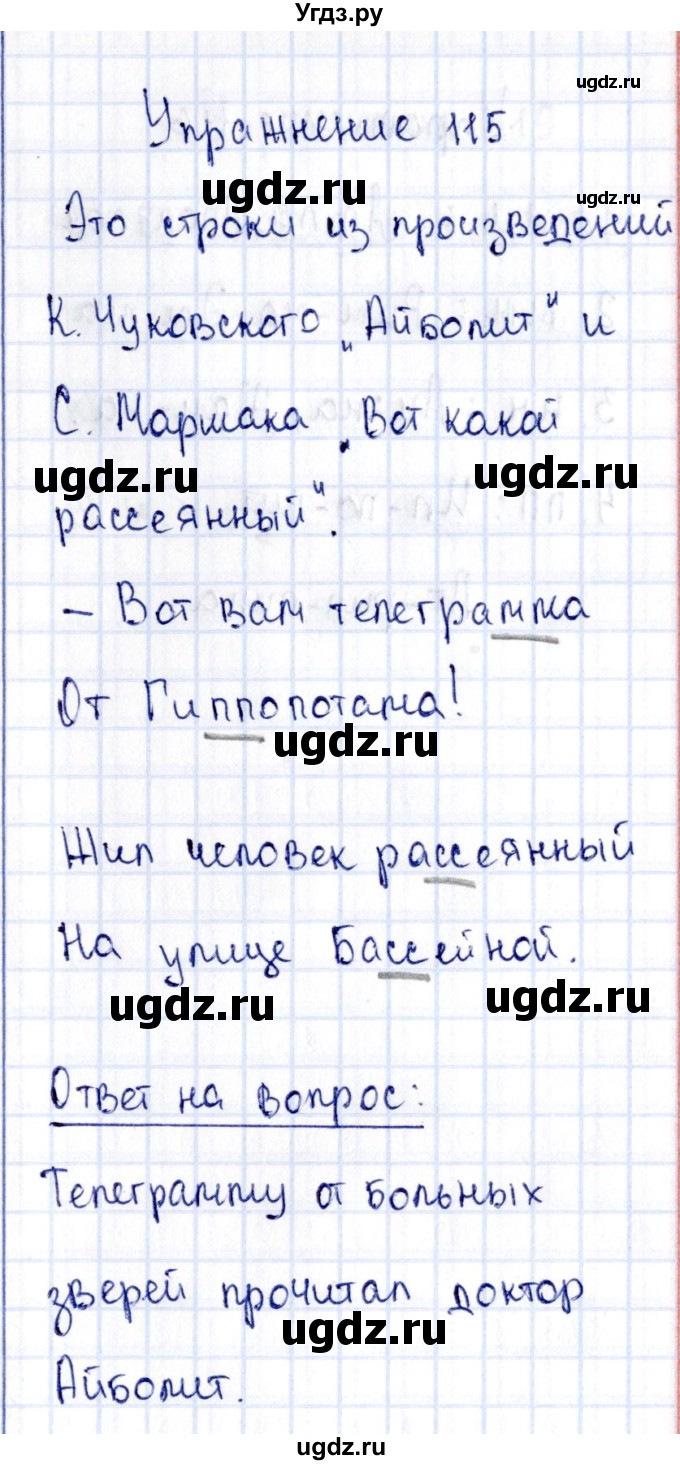 Угдз.ру
ugdz.ru
Упражнение 115
ugdz.ru
Это строки из произведений
К. Чуковского „Айболит" и
С. Маршака „Вот какой
ugdz.ru
ugdz.ru
рассеянный".
- Вот вам телеграмма
От Гиппопотама!
ugdz.ru
Жил человек рассеянный
На улице Бассейной.
ugdz.ru
ugdz.ru
Ответ на вопрос:
Телеграмму от больных
зверей прочитал доктор
ugdz.ru
Айболит.
ugdz.ru